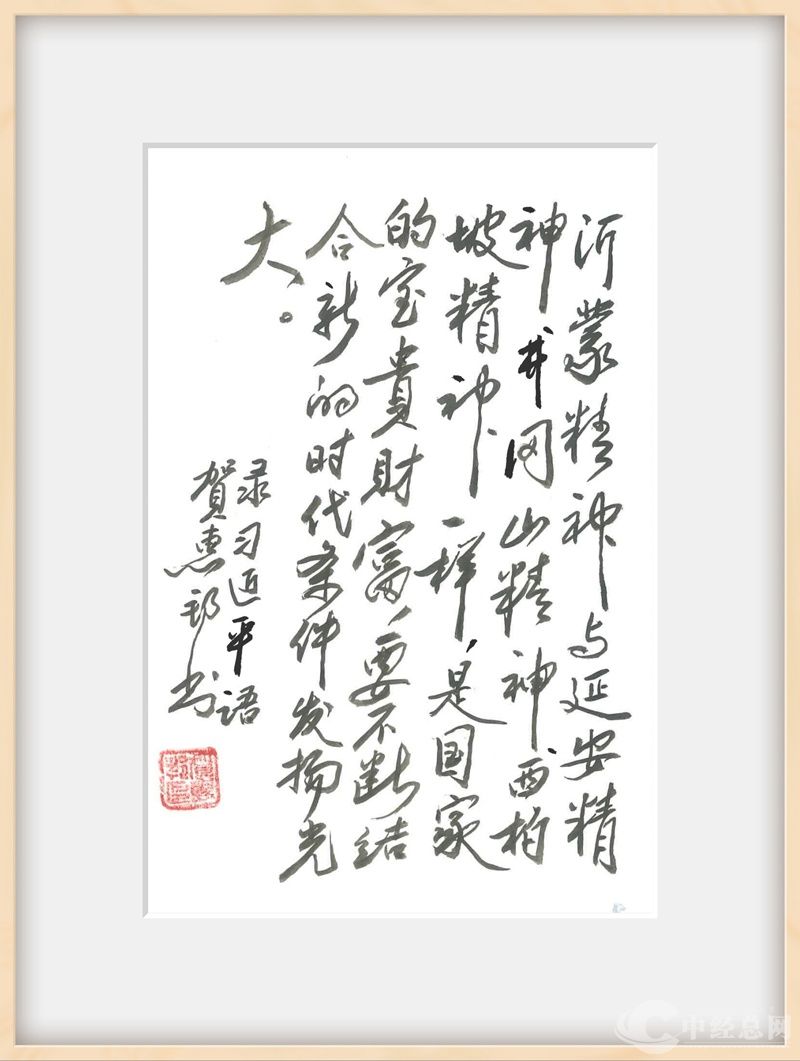 沂蒙精神与延安精
神、井冈山精神、西柏
坡精神、一样,是国家
的宝貴財富,要不断结
合新的时代条件发扬光
大。
录习近平语
賀惠邦书
中经总网